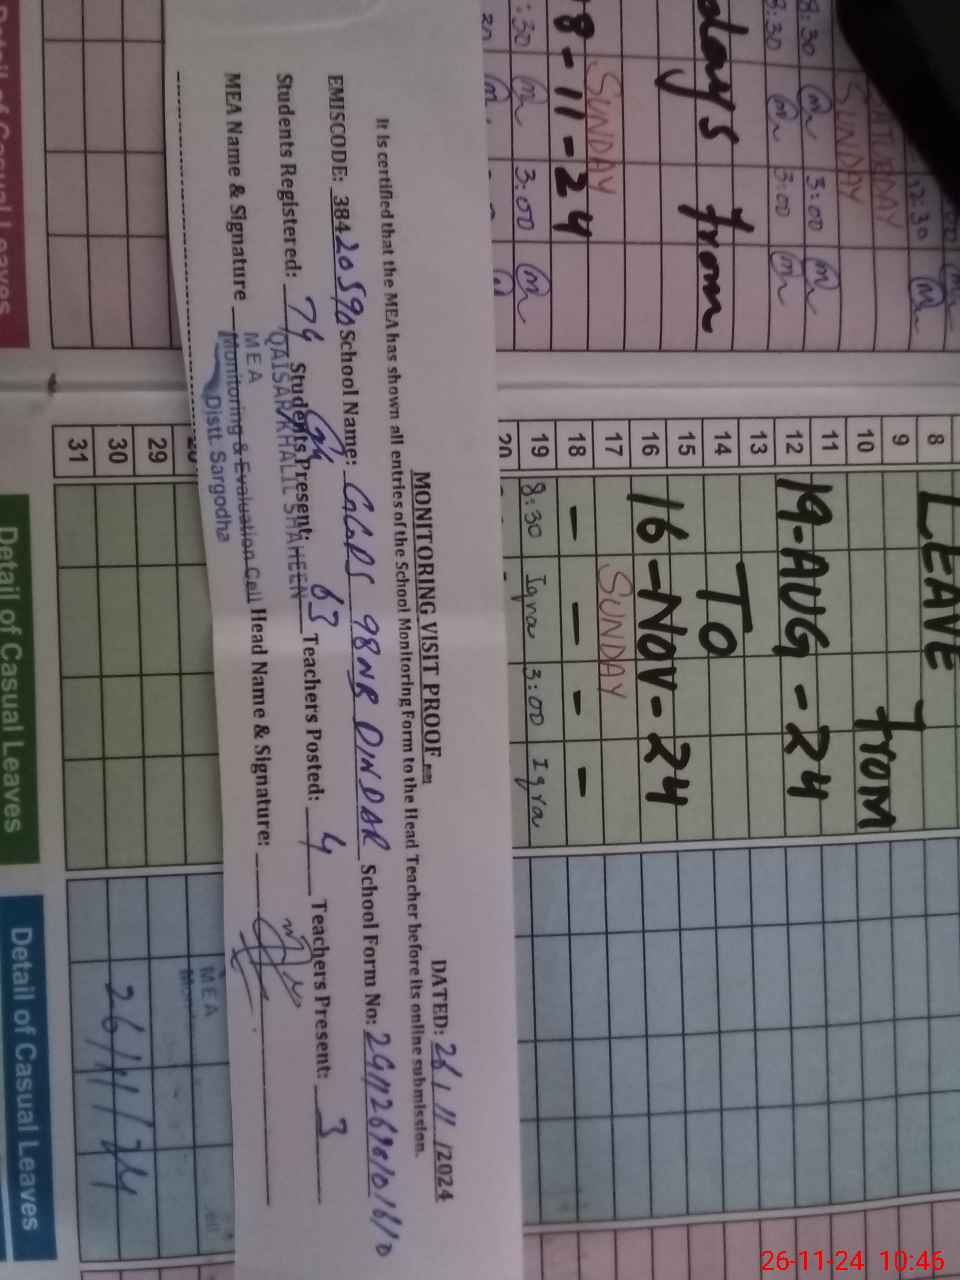 MONITORING VISIT PROOF
DATED: 26/11/2024
It is certified that the MEA has shown all entries of the School Monitoring Form to the Head Teacher before its online submission.
EMISCODE: 38420590 School Name: GGPS 98 NB DINDAR School Form No:
Students Registered: 74 Students Present: 63 Teachers Posted: 4 Teachers Present: 3
MEA Name & Signature Head Name & Signature:
QAISAR KHALIL SHAHEEN
MEA
Monitoring & Evaluation Cell
Distt. Sargodha
12:30
SATURDAY
SUNDAY
8:30 3:00
8:30 3:00
days from
SUNDAY
8-11-24
:30 3:00
20
8 LEAVE
9 from
10
11
12 19-AUG-24
13
14 TO
15
16 16-NOV-24
17 SUNDAY
18 - - - -
19 8:30 Iqra 3:00 Iqra
20
29
30
31
MEA
26/11/24
Detail of Casual Leaves
Detail of Casual Leaves
Detail of Casual Leaves
26-11-24 10:46